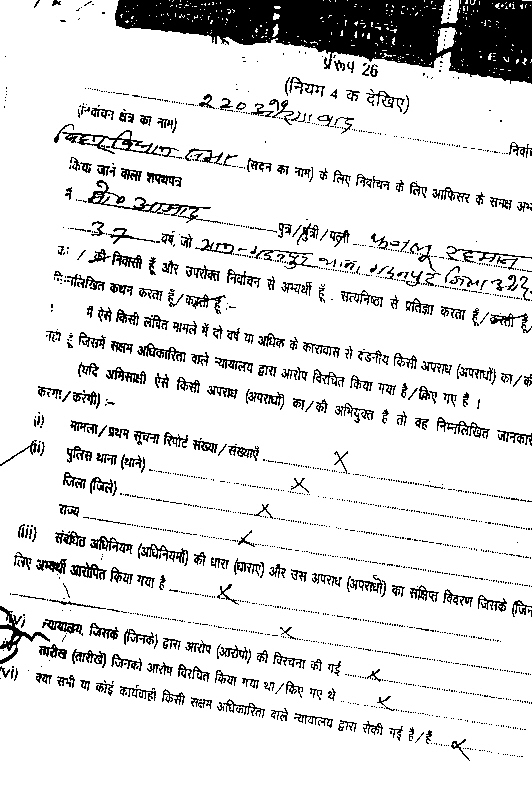 प्ररूप 26
(नियम 4 क देखिए)
220
(निर्वाचन क्षेत्र का नाम)
बिहार विधान सभा (सदन का नाम) के लिए निर्वाचन के लिए आफिसर के समक्ष
किया जाने वाला शपथपत्र
मैं मो० पुत्र/पुत्री/पत्नी रहमान
37 वर्ष, जो जिला
का/की निवासी हूँ और उपरोक्त निर्वाचन से अभ्यर्थी हूँ . सत्यनिष्ठा से प्रतिज्ञा करता हूँ/करती हूँ/
निम्नलिखित कथन करता हूँ/करती हूँ :-
मैं ऐसे किसी लंबित मामले में दो वर्ष या अधिक के कारावास से दंडनीय किसी अपराध (अपराधों) का/की
नहीं हूँ जिसमें सक्षम अधिकारिता वाले न्यायालय द्वारा आरोप विरचित किया गया है/किए गए है ।
(यदि अभिसाक्षी ऐसे किसी अपराध (अपराधों) का/की अभियुक्त है तो वह निम्नलिखित जानकारी
करेगा/करेगी) :-
(i) मामला/प्रथम सूचना रिपोर्ट संख्या/संख्याएँ X
(ii) पुलिस थाना (थाने) X
जिला (जिले) X
राज्य X
(iii) संबंधित अधिनियम (अधिनियमों) की धारा (धाराएं) और उस अपराध (अपराधों) का संक्षिप्त विवरण जिसके (जिन
लिए अभ्यर्थी आरोपित किया गया है X
X
न्यायालय, जिसके (जिनके) द्वारा आरोप (आरोपों) की विरचना की गई X
तारीख (तारीखें) जिनको आरोप विरचित किया गया था/किए गए थे X
(vi) क्या सभी या कोई कार्यवाही किसी सक्षम अधिकारिता वाले न्यायालय द्वारा रोकी गई है/हैं X